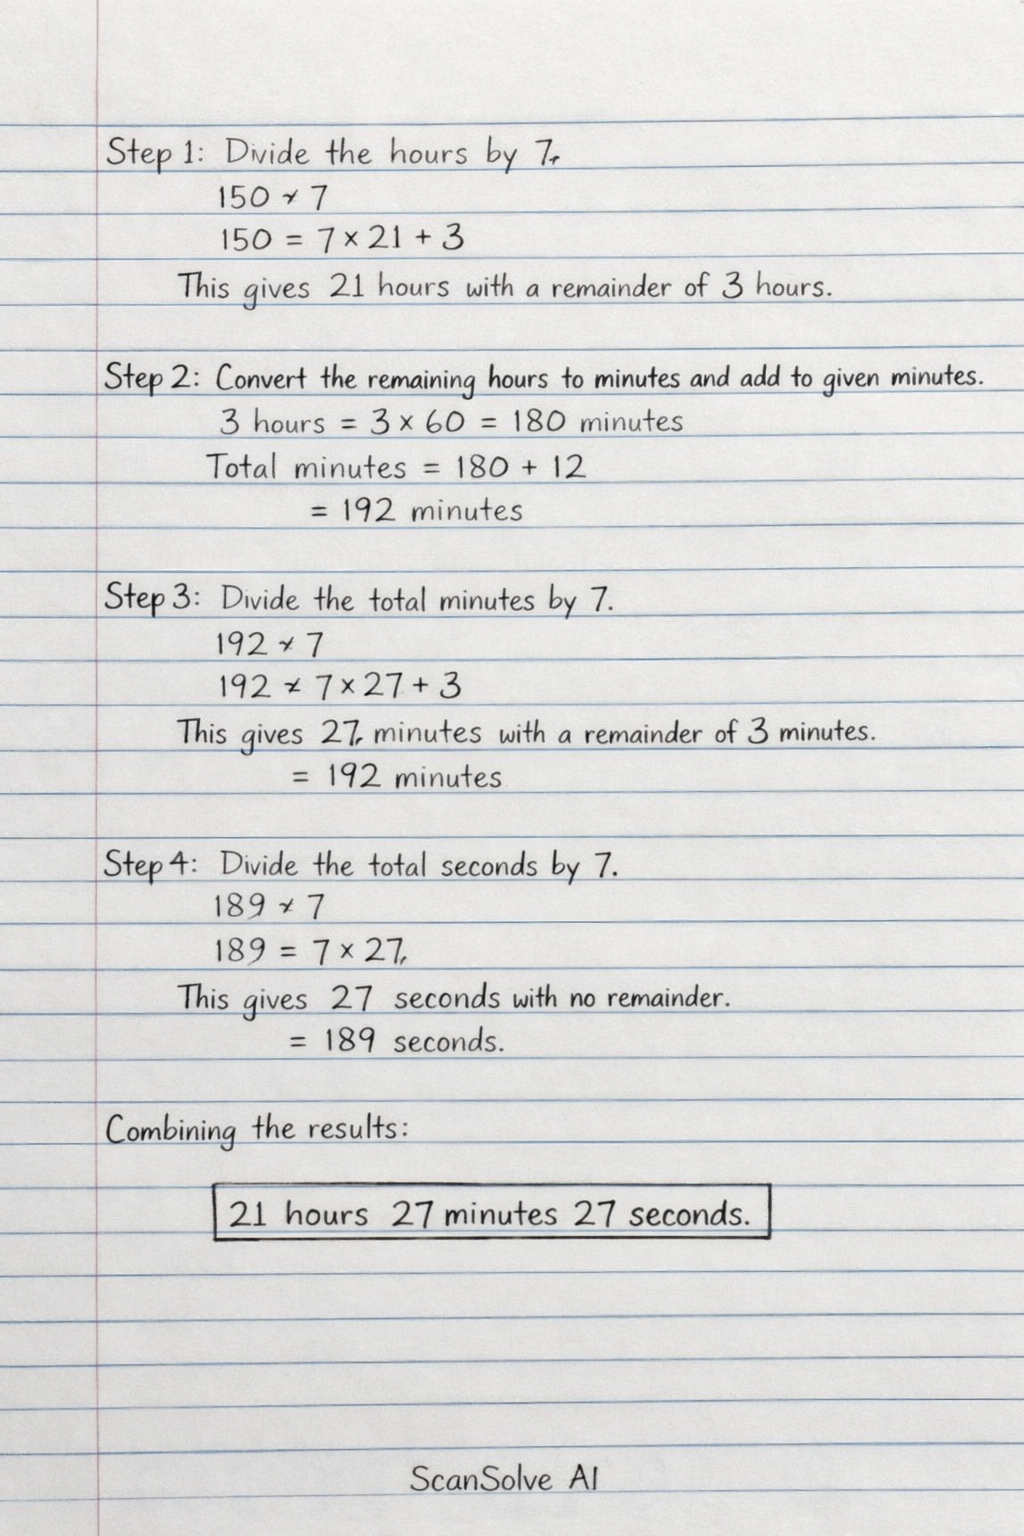 Step 1: Divide the hours by 7.
150 ÷ 7
150 = 7 × 21 + 3
This gives 21 hours with a remainder of 3 hours.
Step 2: Convert the remaining hours to minutes and add to given minutes.
3 hours = 3 × 60 = 180 minutes
Total minutes = 180 + 12
= 192 minutes
Step 3: Divide the total minutes by 7.
192 ÷ 7
192 = 7 × 27 + 3
This gives 27 minutes with a remainder of 3 minutes.
= 192 minutes
Step 4: Divide the total seconds by 7.
189 ÷ 7
189 = 7 × 27
This gives 27 seconds with no remainder.
= 189 seconds.
Combining the results:
21 hours 27 minutes 27 seconds.
ScanSolve AI